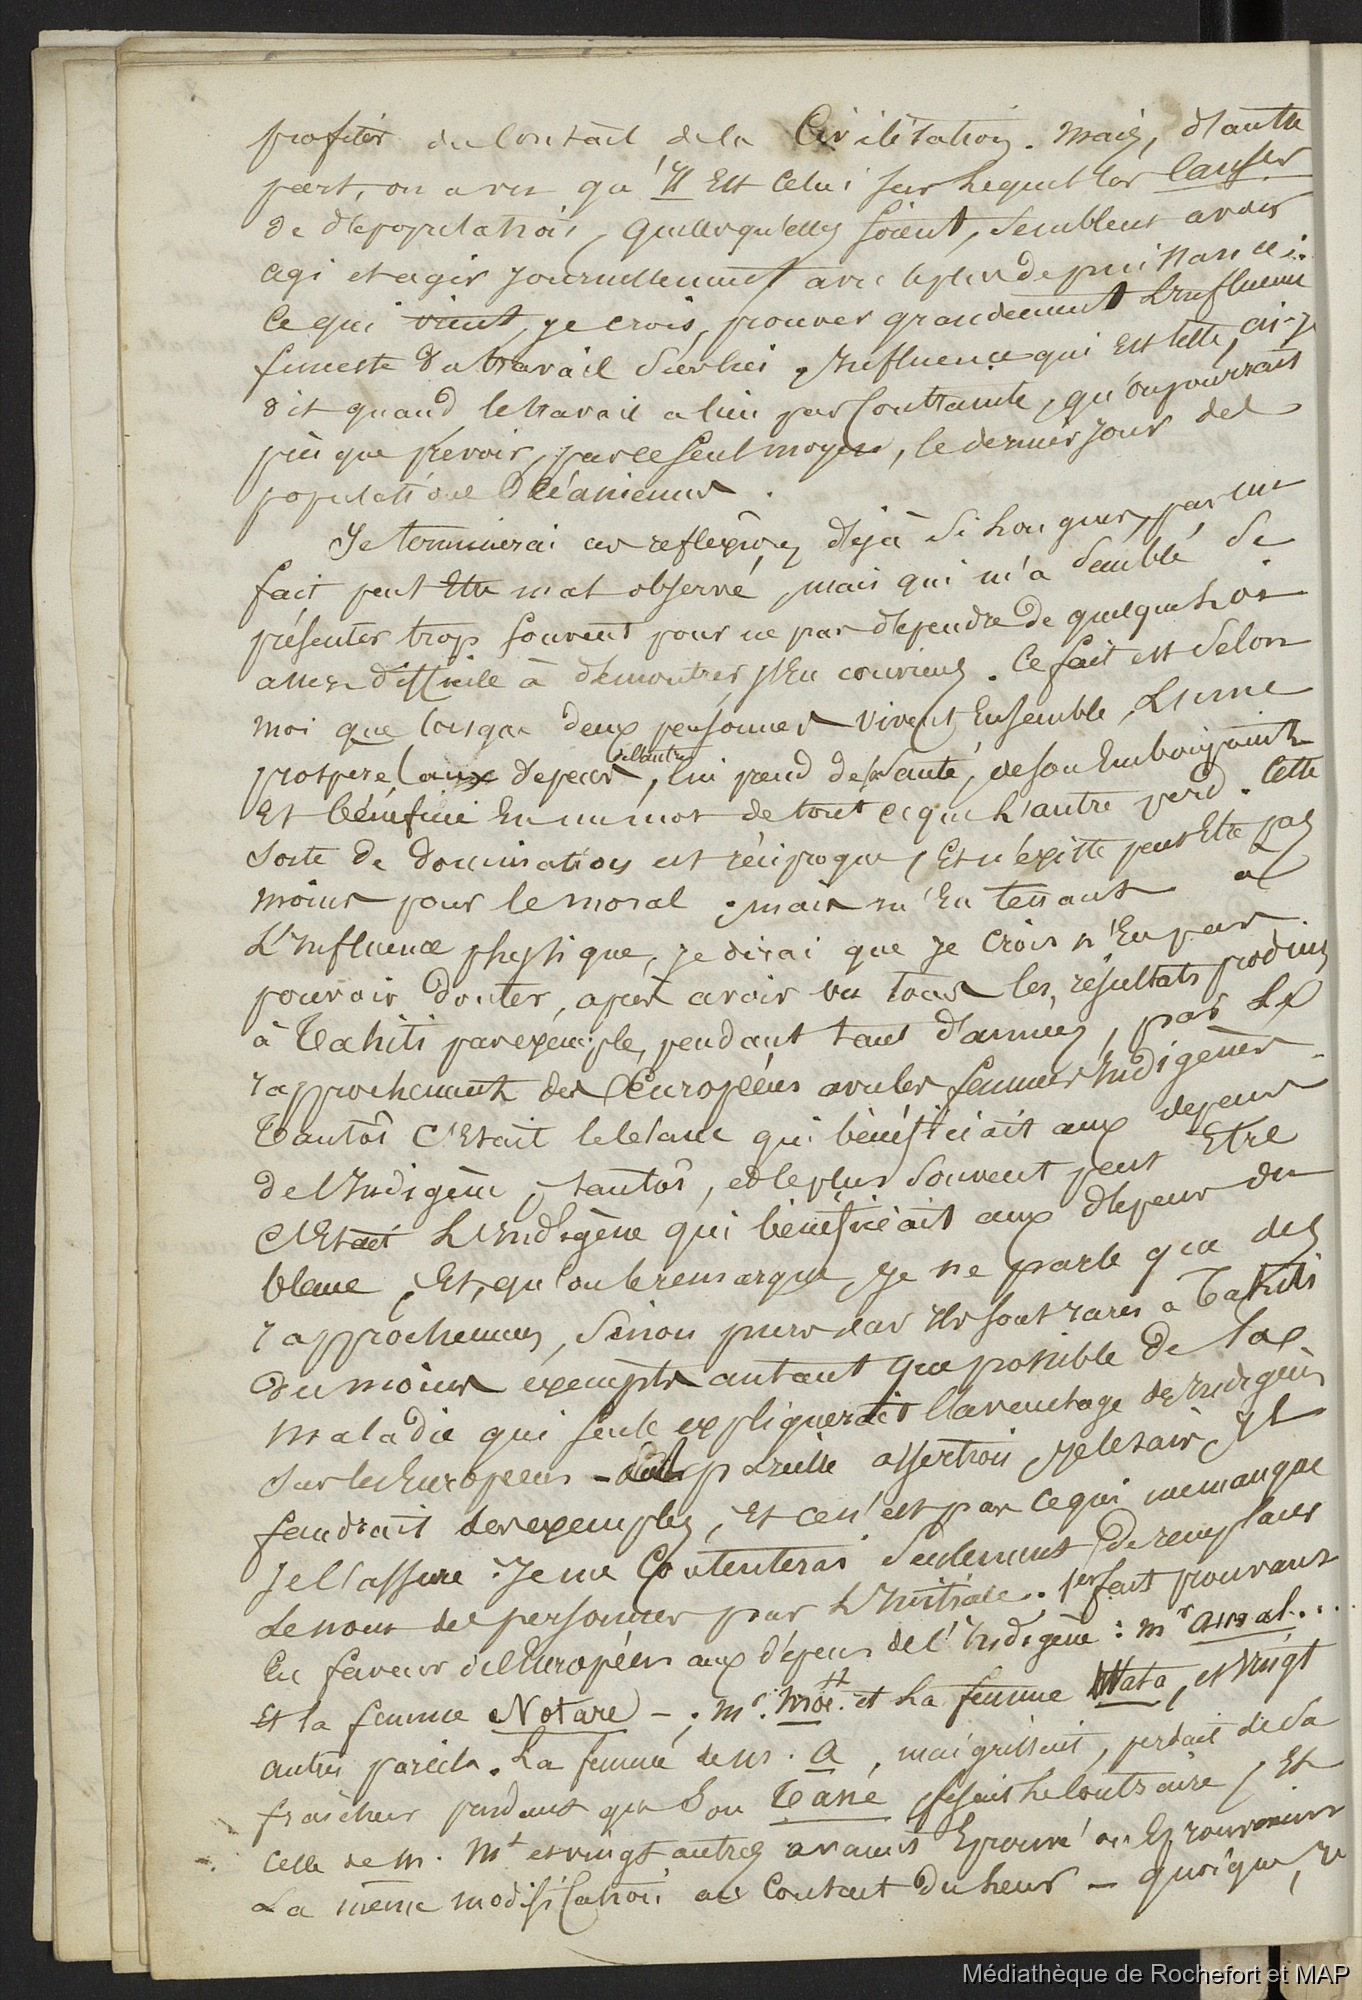 profiter du Contact de la Civilisation. Mais, d'autre
part, on a vu qu'Il Est Celui sur Lequel les causes
de dépopulation, quelles qu'elles soient, semblent avoir
agi et agir journellement avec le plus de puissance :
Ce qui vient, je crois, prouver grandement L'Influence
funeste du travail sur lui, Influence qui est telle, ai-je
dit quand le travail a lieu par Contrainte, qu'on pourrait
presque prévoir, par ce seul moyen, le dernier jour des
populations Océaniennes.
Je terminerai ces reflexions déjà si longues, par un
fait peut Etre mal observé, mais qui m'a semblé se
présenter trop souvent pour ne pas dépendre de quelque loi
assez difficile à démontrer, j'En conviens. Ce fait est selon
moi que lorsque deux personnes vivent Ensemble, L'une
prospère aux depens de l'autre, lui prend de sa santé, de son Embonpoint
Et bénéficie En un mot de tout ce que L'autre perd. Cette
sorte de domination est réciproque, Et n'existe peut Etre pas
moins pour le moral ; mais m'En tenant à
L'Influence physique, je dirai que je crois n'En pas
pouvoir douter, après avoir vu tous les résultats produits
à Tahiti par exemple, pendant tant d'années, par Le
rapprochement des Européens avec les femmes Indigènes.
Tantôt C'Etait le blanc qui bénéficiait aux depens
de l'Indigène, tantôt, et le plus souvent peut Etre
C'Etait L'Indigène qui bénéficiait aux depens du
blanc, Et, qu'on le remarque, je ne parle que des
rapprochemens, sinon purs car Ils sont rares à Tahiti
du moins exempts autant que possible de la
maladie qui seule expliquerait l'avantage des Indigènes
sur les Européens - pareille assertion, je le sais, Il
faudrait des exemples, Et ce n'est pas ce qui me manque
Je l'assure : Je me Contenterai seulement de remplacer
Le nom des personnes par L'Initiale. 1er fait prouvant
En faveur de l'Européen aux dépens de l'Indigène : Mr Amal...
Et la femme Notare - ; Mr. Mottt. et La femme Wata, et vingt
autres pareils. La femme de M. A, maigrissait, perdait de sa
fraîcheur pendant que Son Tané, faisait Le Contraire, Et
Celle de M. Mt et vingt autres avaient Eprouvé ou Eprouvaient
La même modification au Contact du leur - quoique, je
Médiathèque de Rochefort et MAP